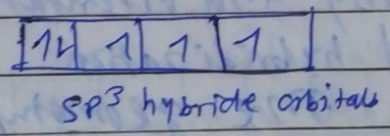 1↿⇂ 1 1 1
SP³ hybride orbitals